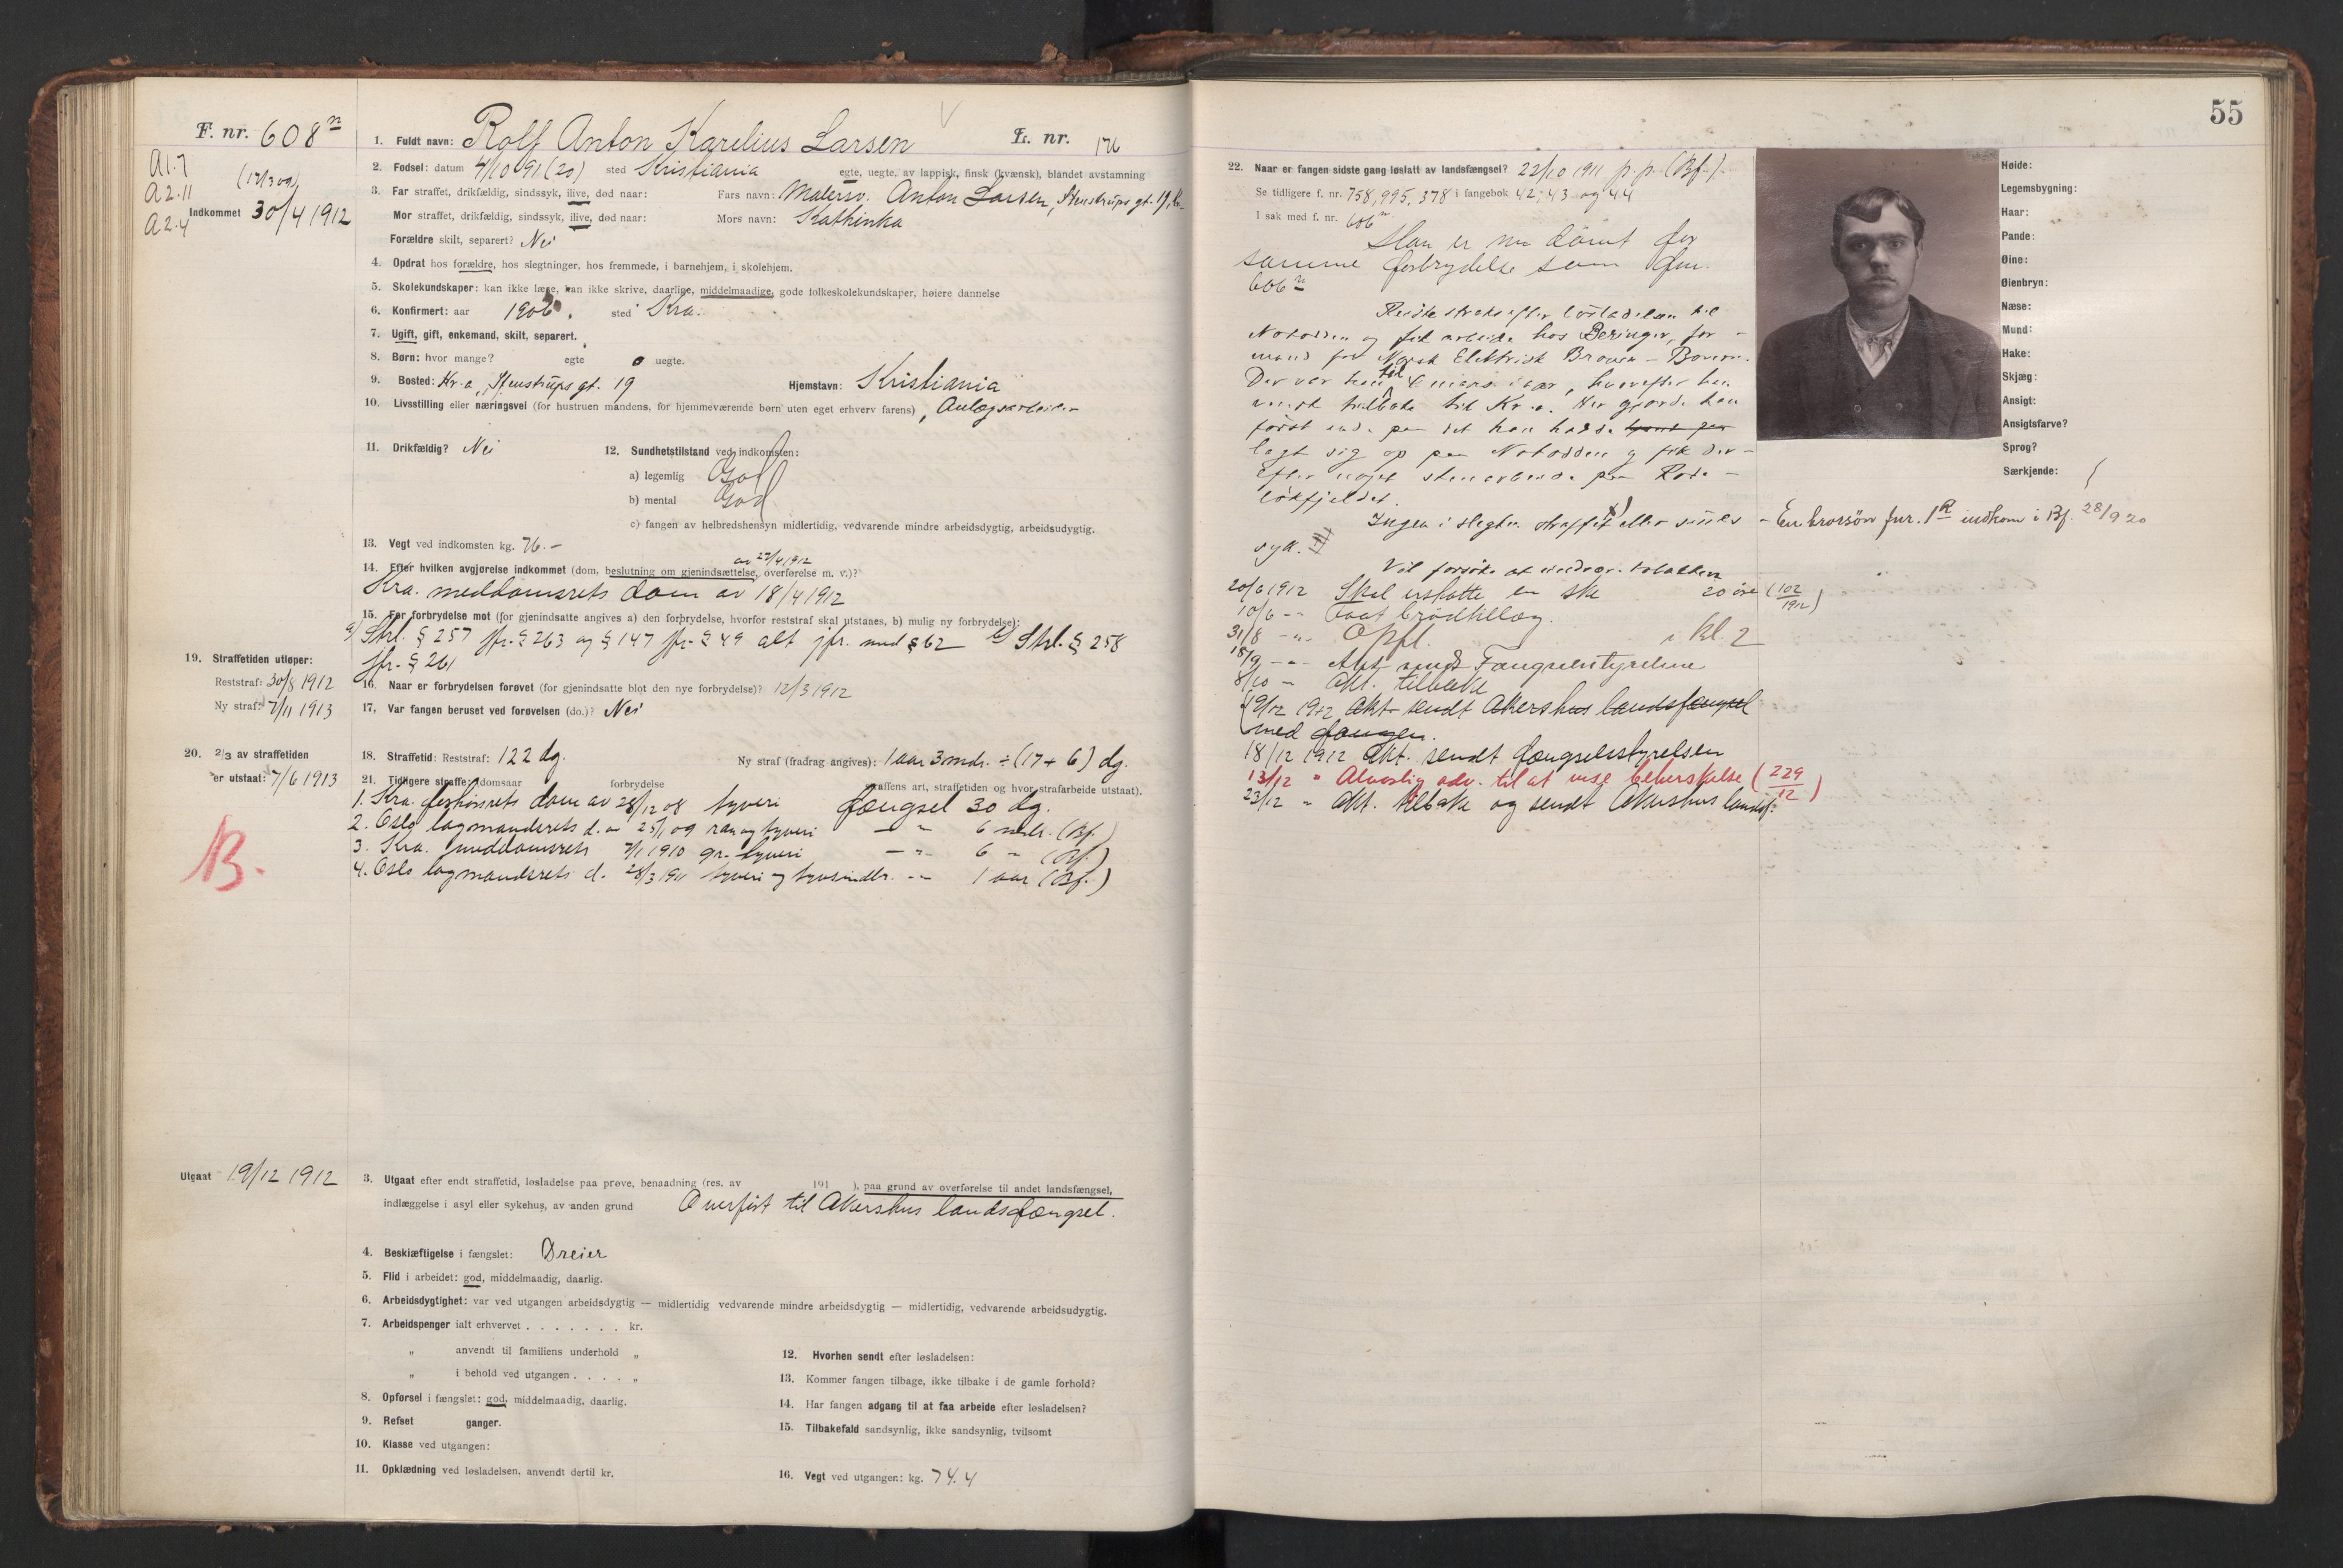 F. nr. 608 n
A1.7
A2.11
A2.4
(17/3 09)
Indkommet 30/4 1912
1. Fuldt navn: Rolf Anton Karelius Larsen L. nr. 176
2. Fødsel: datum 4/10 91 (20) sted Kristiania egte, uegte, av lappisk, finsk (kvænsk), blandet avstamning
3. Far straffet, drikfældig, sindssyk, ilive, død naar: Fars navn: Malersv. Anton Larsen, Stenstrups gt. 19, Kr.
Mor straffet, drikfældig, sindssyk, ilive, død naar: Mors navn: Kathinka
Forældre skilt, separert? Nei
4. Opdrat hos forældre, hos slegtninger, hos fremmede, i barnehjem, i skolehjem.
5. Skolekundskaper: kan ikke læse, kan ikke skrive, daarlige, middelmaadige, gode folkeskolekundskaper, høiere dannelse
6. Konfirmert: aar 1906. sted Kra.
7. Ugift, gift, enkemand, skilt, separert.
8. Børn: hvor mange? egte 0 uegte.
9. Bosted: Kr.a, Stenstrups gt. 19 Hjemstavn: Kristiania
10. Livsstilling eller næringsvei (for hustruen mandens, for hjemmeværende børn uten eget erhverv farens), Anlægsarbeider
11. Drikfældig? Nei 12. Sundhetstilstand ved indkomsten:
a) legemlig God
b) mental God
c) fangen av helbredshensyn midlertidig, vedvarende mindre arbeidsdygtig, arbeidsudygtig.
13. Vegt ved indkomsten kg. 76.-
av 27/4 1912
14. Efter hvilken avgjørelse indkommet (dom, beslutning om gjenindsættelse, overførelse m. v.)?
Kra. meddomsrets dom av 18/4 1912
15. For forbrydelse mot (for gjenindsatte angives a) den forbrydelse, hvorfor reststraf skal utstaaes, b) mulig ny forbrydelse):
a) Strl. § 257 jfr. § 263 og § 147 jfr. § 49 alt jfr. med § 62 b) Strl. § 258
jfr. § 261
16. Naar er forbrydelsen forøvet (for gjenindsatte blot den nye forbrydelse)? 12/3 1912
17. Var fangen beruset ved forøvelsen (do.)? Nei
18. Straffetid: Reststraf: 122 dg. Ny straf (fradrag angives): 1 aar 3 mdr. ÷ (17 + 6) dg.
19. Straffetiden utløper:
Reststraf: 30/8 1912
Ny straf: 7/11 1913
20. 2/3 av straffetiden
er utstaat: 7/6 1913
21. Tidligere straffe: domsaar forbrydelse straffens art, straffetiden og hvor strafarbeide utstaat).
1. Kra. forhørsrets dom av 28/12 08 tyveri fængsel 30 dg.
2. Oslo lagmandsrets d. av 25/1 09 ran og tyveri — " 6 mdr. (Bf.)
3. Kra. meddomsrets 7/1 1910 gr. tyveri — " 6 " (Bf.)
4. Oslo lagmandsrets d. 28/3 1911 tyveri og tyvsindbr. — 1 aar (Bf.)
B.
Utgaat 19/12 1912
3. Utgaat efter endt straffetid, løsladelse paa prøve, benaadning (res. av 191 ), paa grund av overførelse til andet landsfængsel,
indlæggelse i asyl eller sykehus, av anden grund Overført til Akershus landsfængsel.
4. Beskjæftigelse i fængslet: Dreier
5. Flid i arbeidet: god, middelmaadig, daarlig.
6. Arbeidsdygtighet: var ved utgangen arbeidsdygtig — midlertidig vedvarende mindre arbeidsdygtig — midlertidig, vedvarende arbeidsudygtig.
7. Arbeidspenger ialt erhvervet . . . . . . . kr.
„ anvendt til familiens underhold „
„ i behold ved utgangen . . . . „
8. Opførsel i fængslet: god, middelmaadig, daarlig.
9. Refset ganger.
10. Klasse ved utgangen:
11. Opklædning ved løsladelsen, anvendt dertil kr.
12. Hvorhen sendt efter løsladelsen:
13. Kommer fangen tilbage, ikke tilbake i de gamle forhold?
14. Har fangen adgang til at faa arbeide efter løsladelsen?
15. Tilbakefald sandsynlig, ikke sandsynlig, tvilsomt
16. Vegt ved utgangen: kg. 74.4
55
22. Naar er fangen sidste gang løslatt av landsfængsel? 22/10 1911 p.p. (Bf.).
Se tidligere f. nr. 758, 995, 378 i fangebok 42, 43 og 44
I sak med f. nr. 606 n
Han er nu dømt for
samme forbrydelse som fm.
606 n
Reiste straks efter løsladelsen til
Notodden og fik arbeide hos Beringer, for-
mand for Norsk Elektrisk Brown-Boveri.
Der var han til mars i aar, hvorefter han
reiste tilbake til Kr.a. Her gjorde han
først ende paa det han hadde
lagt sig op paa Notodden og fik der-
efter noget stenarbeide paa Rode-
løkfjeldet.
Ingen i slegten straffet eller sinds- - En brorsøn fnr. 1 R indkom i Bf. 28/9 20
syk.
Vil forsøke at
20/6 1912 Skal erstatte en ske 20 øre (102/1912)
10/6 -"- Faat brødtillæg.
31/8 -"- Opfl. i kl. 2
18/9 -"- Akt sendt Fængselsstyrelsen
8/10 " Akt. tilbake
19/12 1912 Akt. sendt Akershus landsfængsel
med fangen.
18/12 1912 Akt. sendt fængselsstyrelsen
13/12 " Alvorlig adv. til at vise beherskelse (229/12)
23/12 " Akt. tilbake og sendt Akershus landsf.
Høide:
Legemsbygning:
Haar:
Pande:
Øine:
Øienbryn:
Næse:
Mund:
Hake:
Skjæg:
Ansigt:
Ansigtsfarve?
Sprog?
Særkjende: